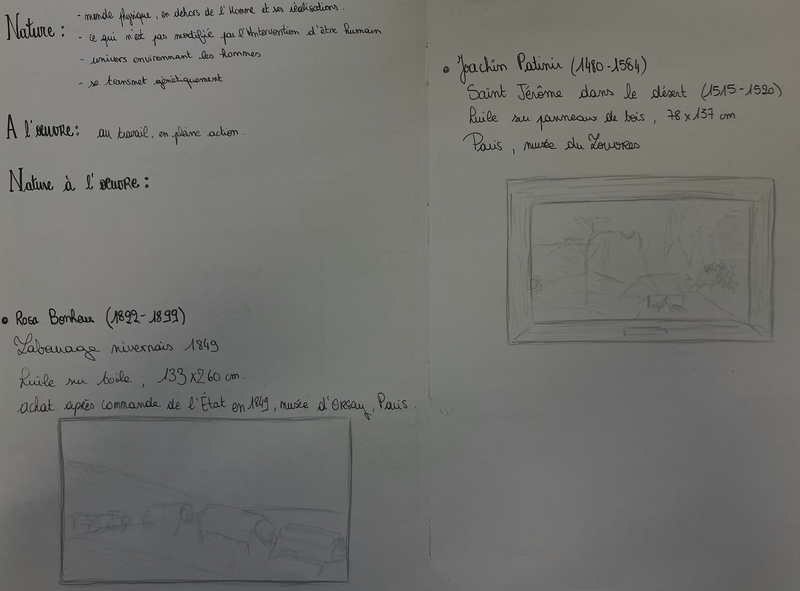 Nature :
- monde physique, en dehors de l'Homme et ses réalisations.
- ce qui n'est pas modifiée par l'intervention d'être humain
- univers environnant les hommes
- se transmet génétiquement
A l'oeuvre : au travail, en pleine action.
Nature à l'oeuvre :
• Rosa Bonheur (1822-1899)
Labourage nivernais 1849
Huile sur toile, 133x260 cm.
achat après commande de l'État en 1849, musée d'Orsay, Paris.
• Joachin Patinir (1480-1584)
Saint Jérôme dans le désert (1515-1520)
Huile sur panneaux de bois, 78x137 cm
Paris, musée du Louvres